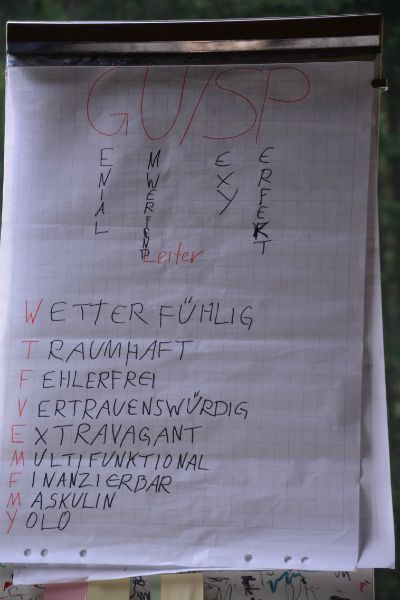 GU/SP
ENIAL
MWERFEND
EXY
ERFEKT
Leiter
WETTERFÜHLIG
TRAUMHAFT
FEHLERFREI
VERTRAUENSWÜRDIG
EXTRAVAGANT
MULTIFUNKTIONAL
FINANZIERBAR
MASKULIN
YOLO